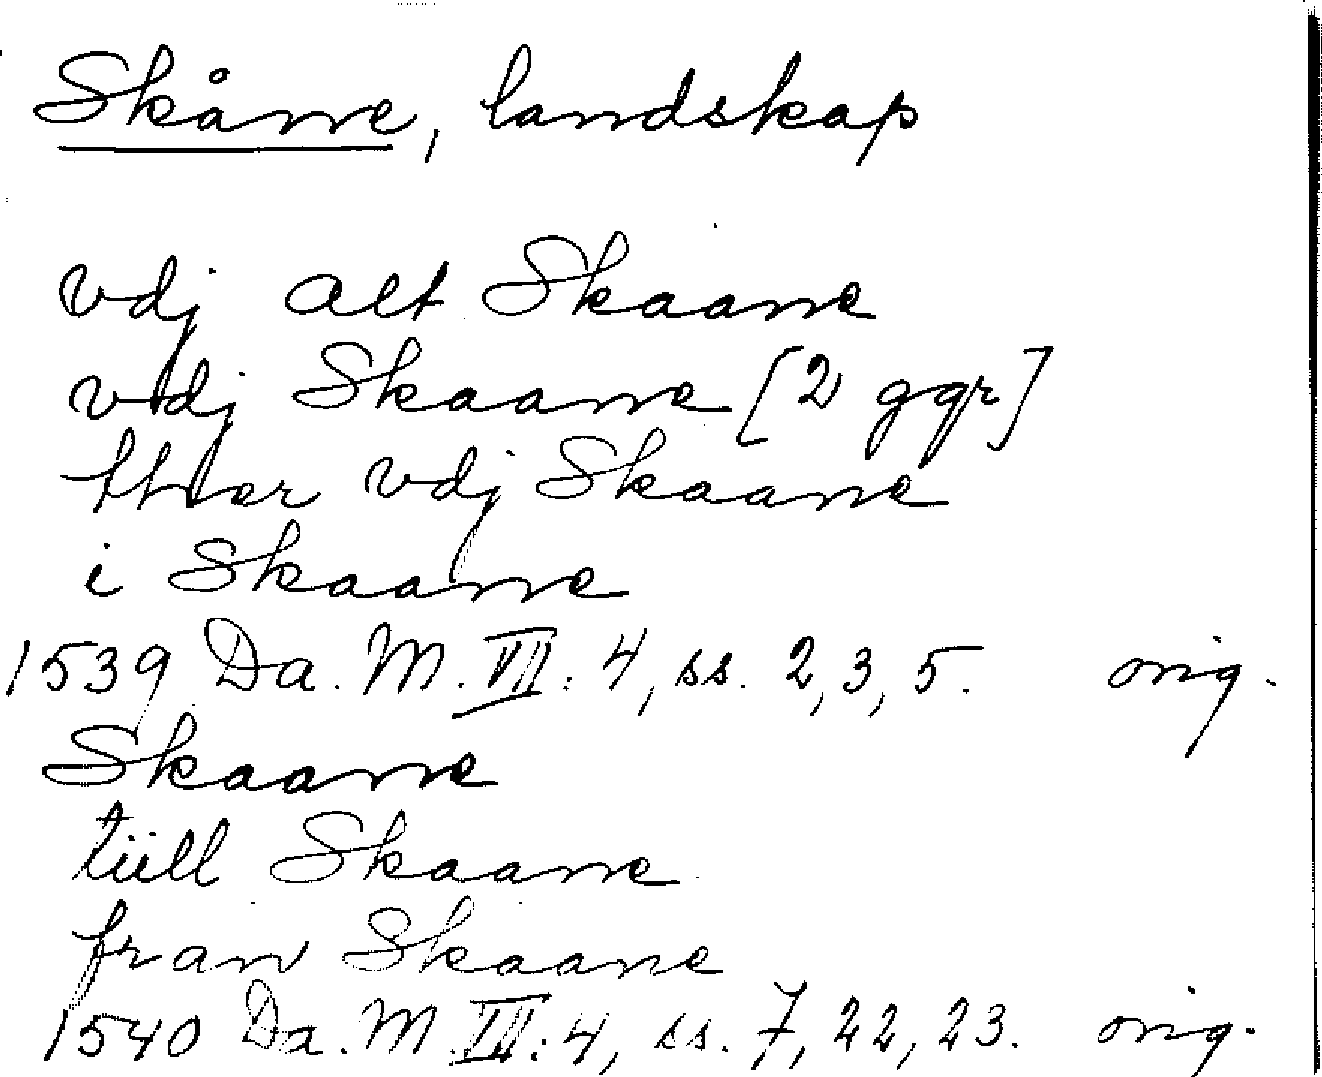 Skåne, landskap
vdj alt Skaane
vdj Skaane [2 ggr]
ther vdj Skaane
i Skaane
1539 Da. M. VI: 4, ss. 2, 3, 5. orig.
Skaane
tiill Skaane
fran Skaane
1540 Da. M. III: 4, ss. 7, 22, 23. orig.